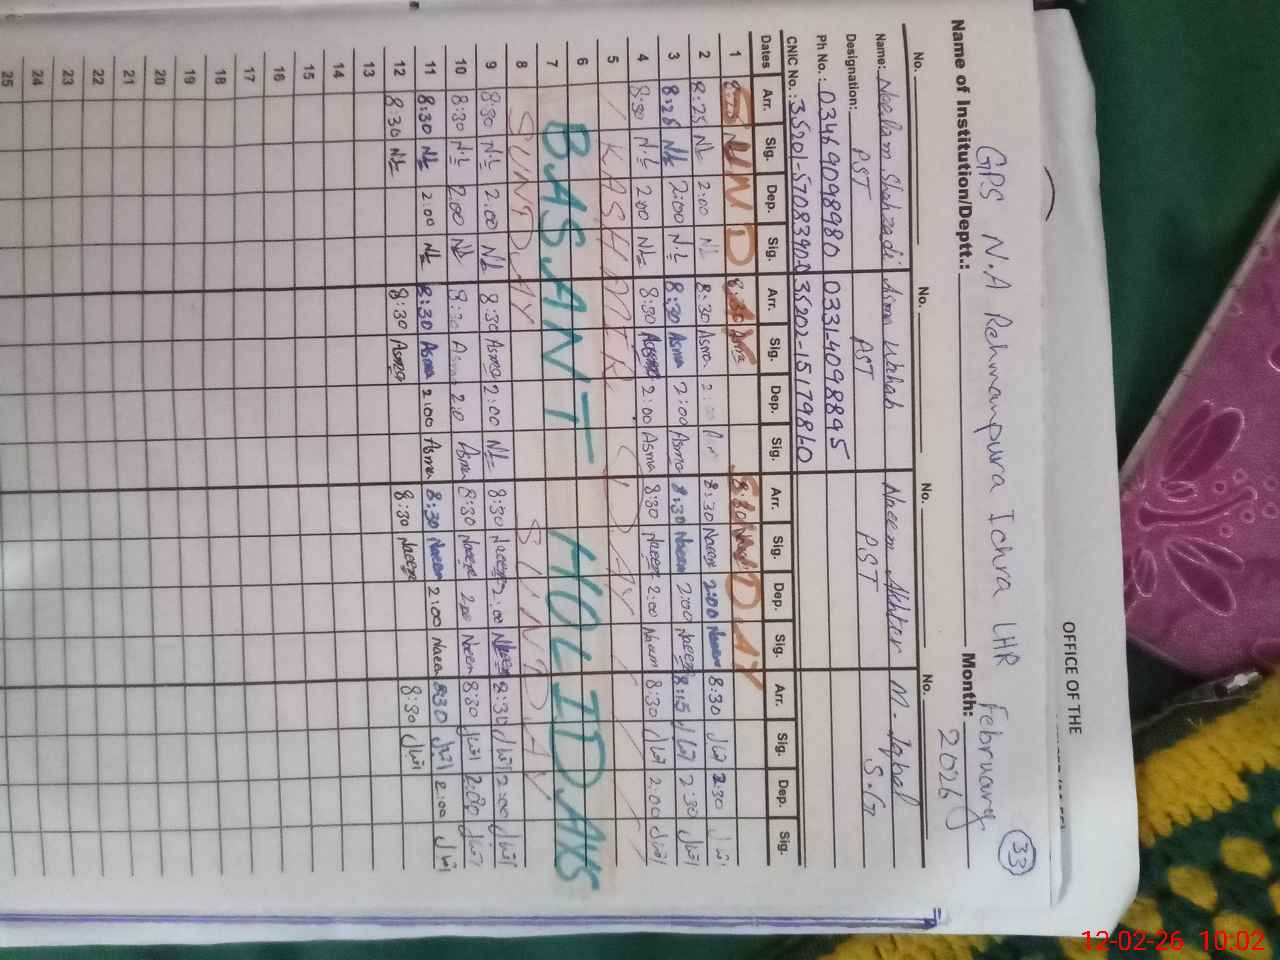 OFFICE OF THE
33
GPS N.A Rehmanpura Ichra LHR February
2026
Name of Institution/Deptt.: Month:
No. No. No. No.
Name: Neelam Shahzadi Asma Wahab Naeem Akhtar M. Iqbal
Designation: PST PST PST S.G
Ph No.: 03469098980 03314098895
CNIC No.: 35202-1517981-0
Dates Arr. Sig. Dep. Sig. Arr. Sig. Dep. Sig. Arr. Sig. Dep. Sig. Arr. Sig. Dep. Sig.
1 SUNDAY SUNDAY
2 8:25 2:00 8:30 Asma 8:30 Naeem 2:00 Naeem 8:30 اقبال 2:30 اقبال
3 8:25 2:00 8:30 Asma 2:00 Asma 8:30 Naeem 2:00 Naeem 8:15 اقبال 2:30 اقبال
4 8:30 2:00 8:30 Asma 2:00 Asma 8:30 Naeem 2:00 Naeem 8:30 اقبال 2:00 اقبال
5 KASHMIR DAY
6 BASANT HOLIDAYS
7
8 SUNDAY SUNDAY
9 8:30 2:00 8:30 Asma 2:00 8:30 Naeem 2:00 Naeem 8:30 اقبال 2:00 اقبال
10 8:30 2:00 8:30 Asma Asma 8:30 Naeem 2:00 Naeem 8:30 اقبال 2:00 اقبال
11 8:30 2:00 8:30 Asma 2:00 Asma 8:30 Naeem 2:00 Naeem 8:30 اقبال 2:00 اقبال
12 8:30 8:30 Asma 8:30 Naeem 8:30 اقبال
13
14
15
16
17
18
19
20
21
22
23
24
25
12-02-26 10:02